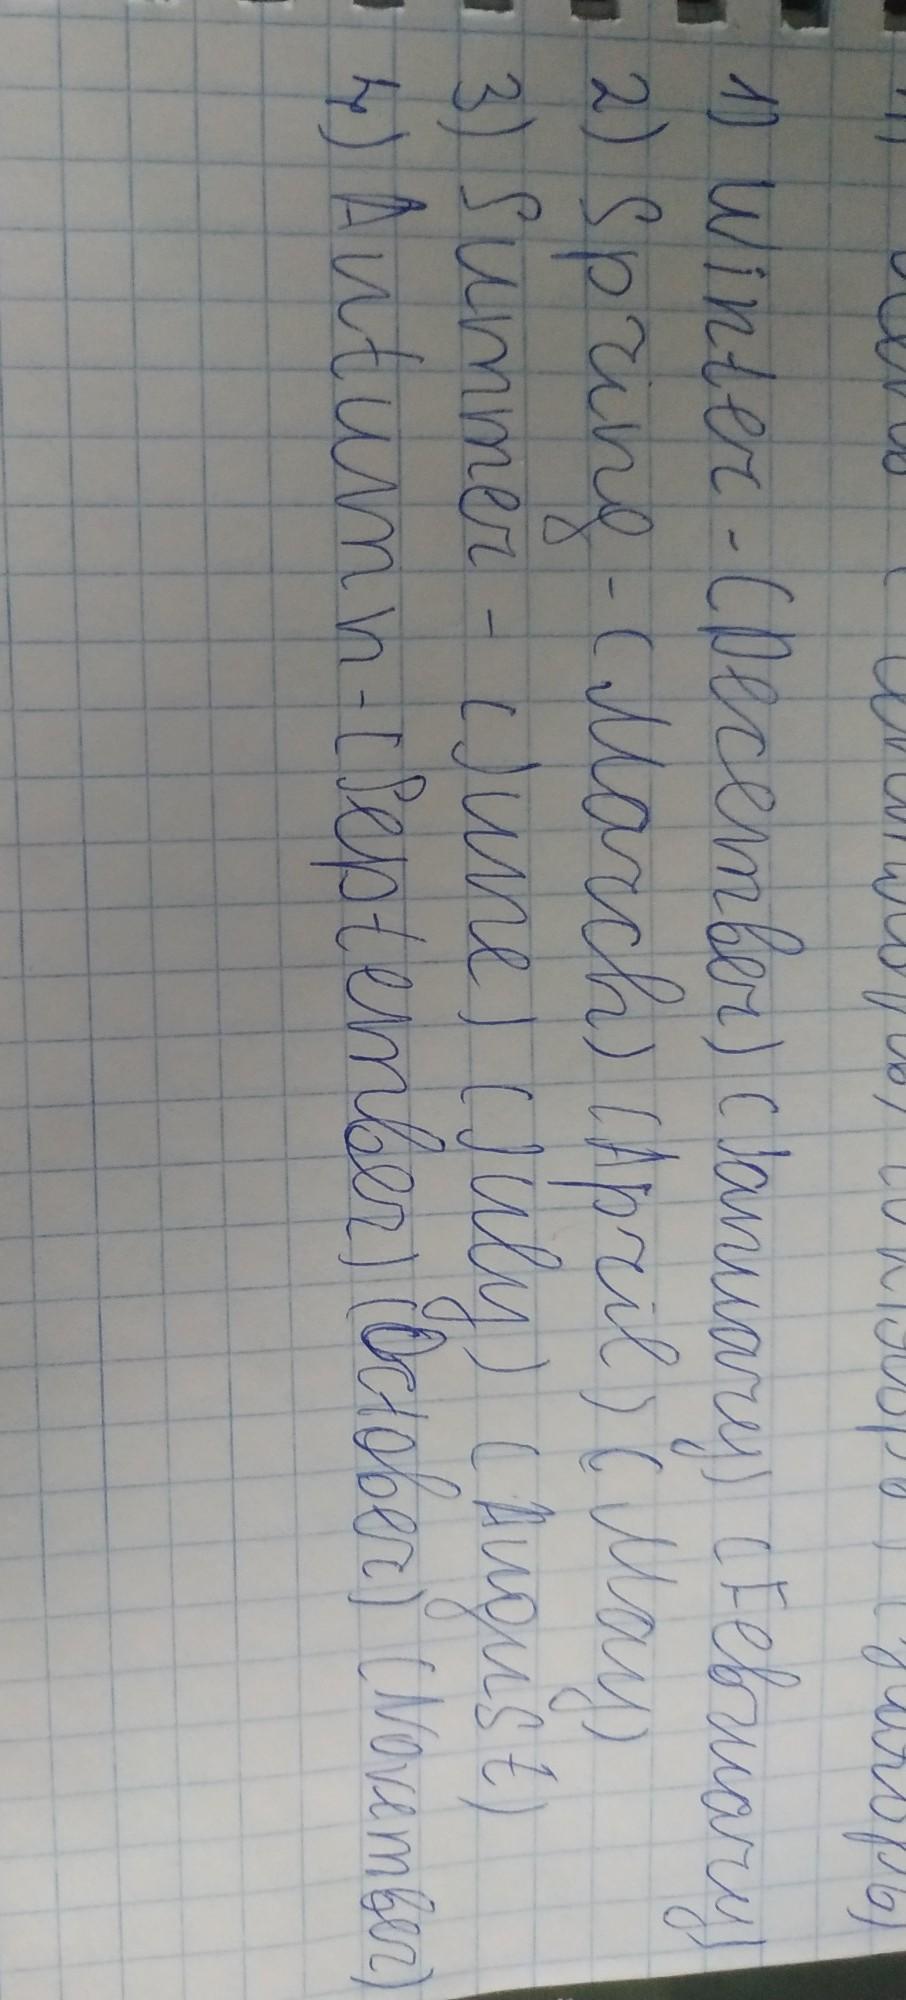 4) осень ( сентябрь) (октябрь) (ноябрь)
1) Winter - (December) (January) (February)
2) Spring - (March) (April) (May)
3) Summer - (June) (July) (August)
4) Autumn - (September) (October) (November)